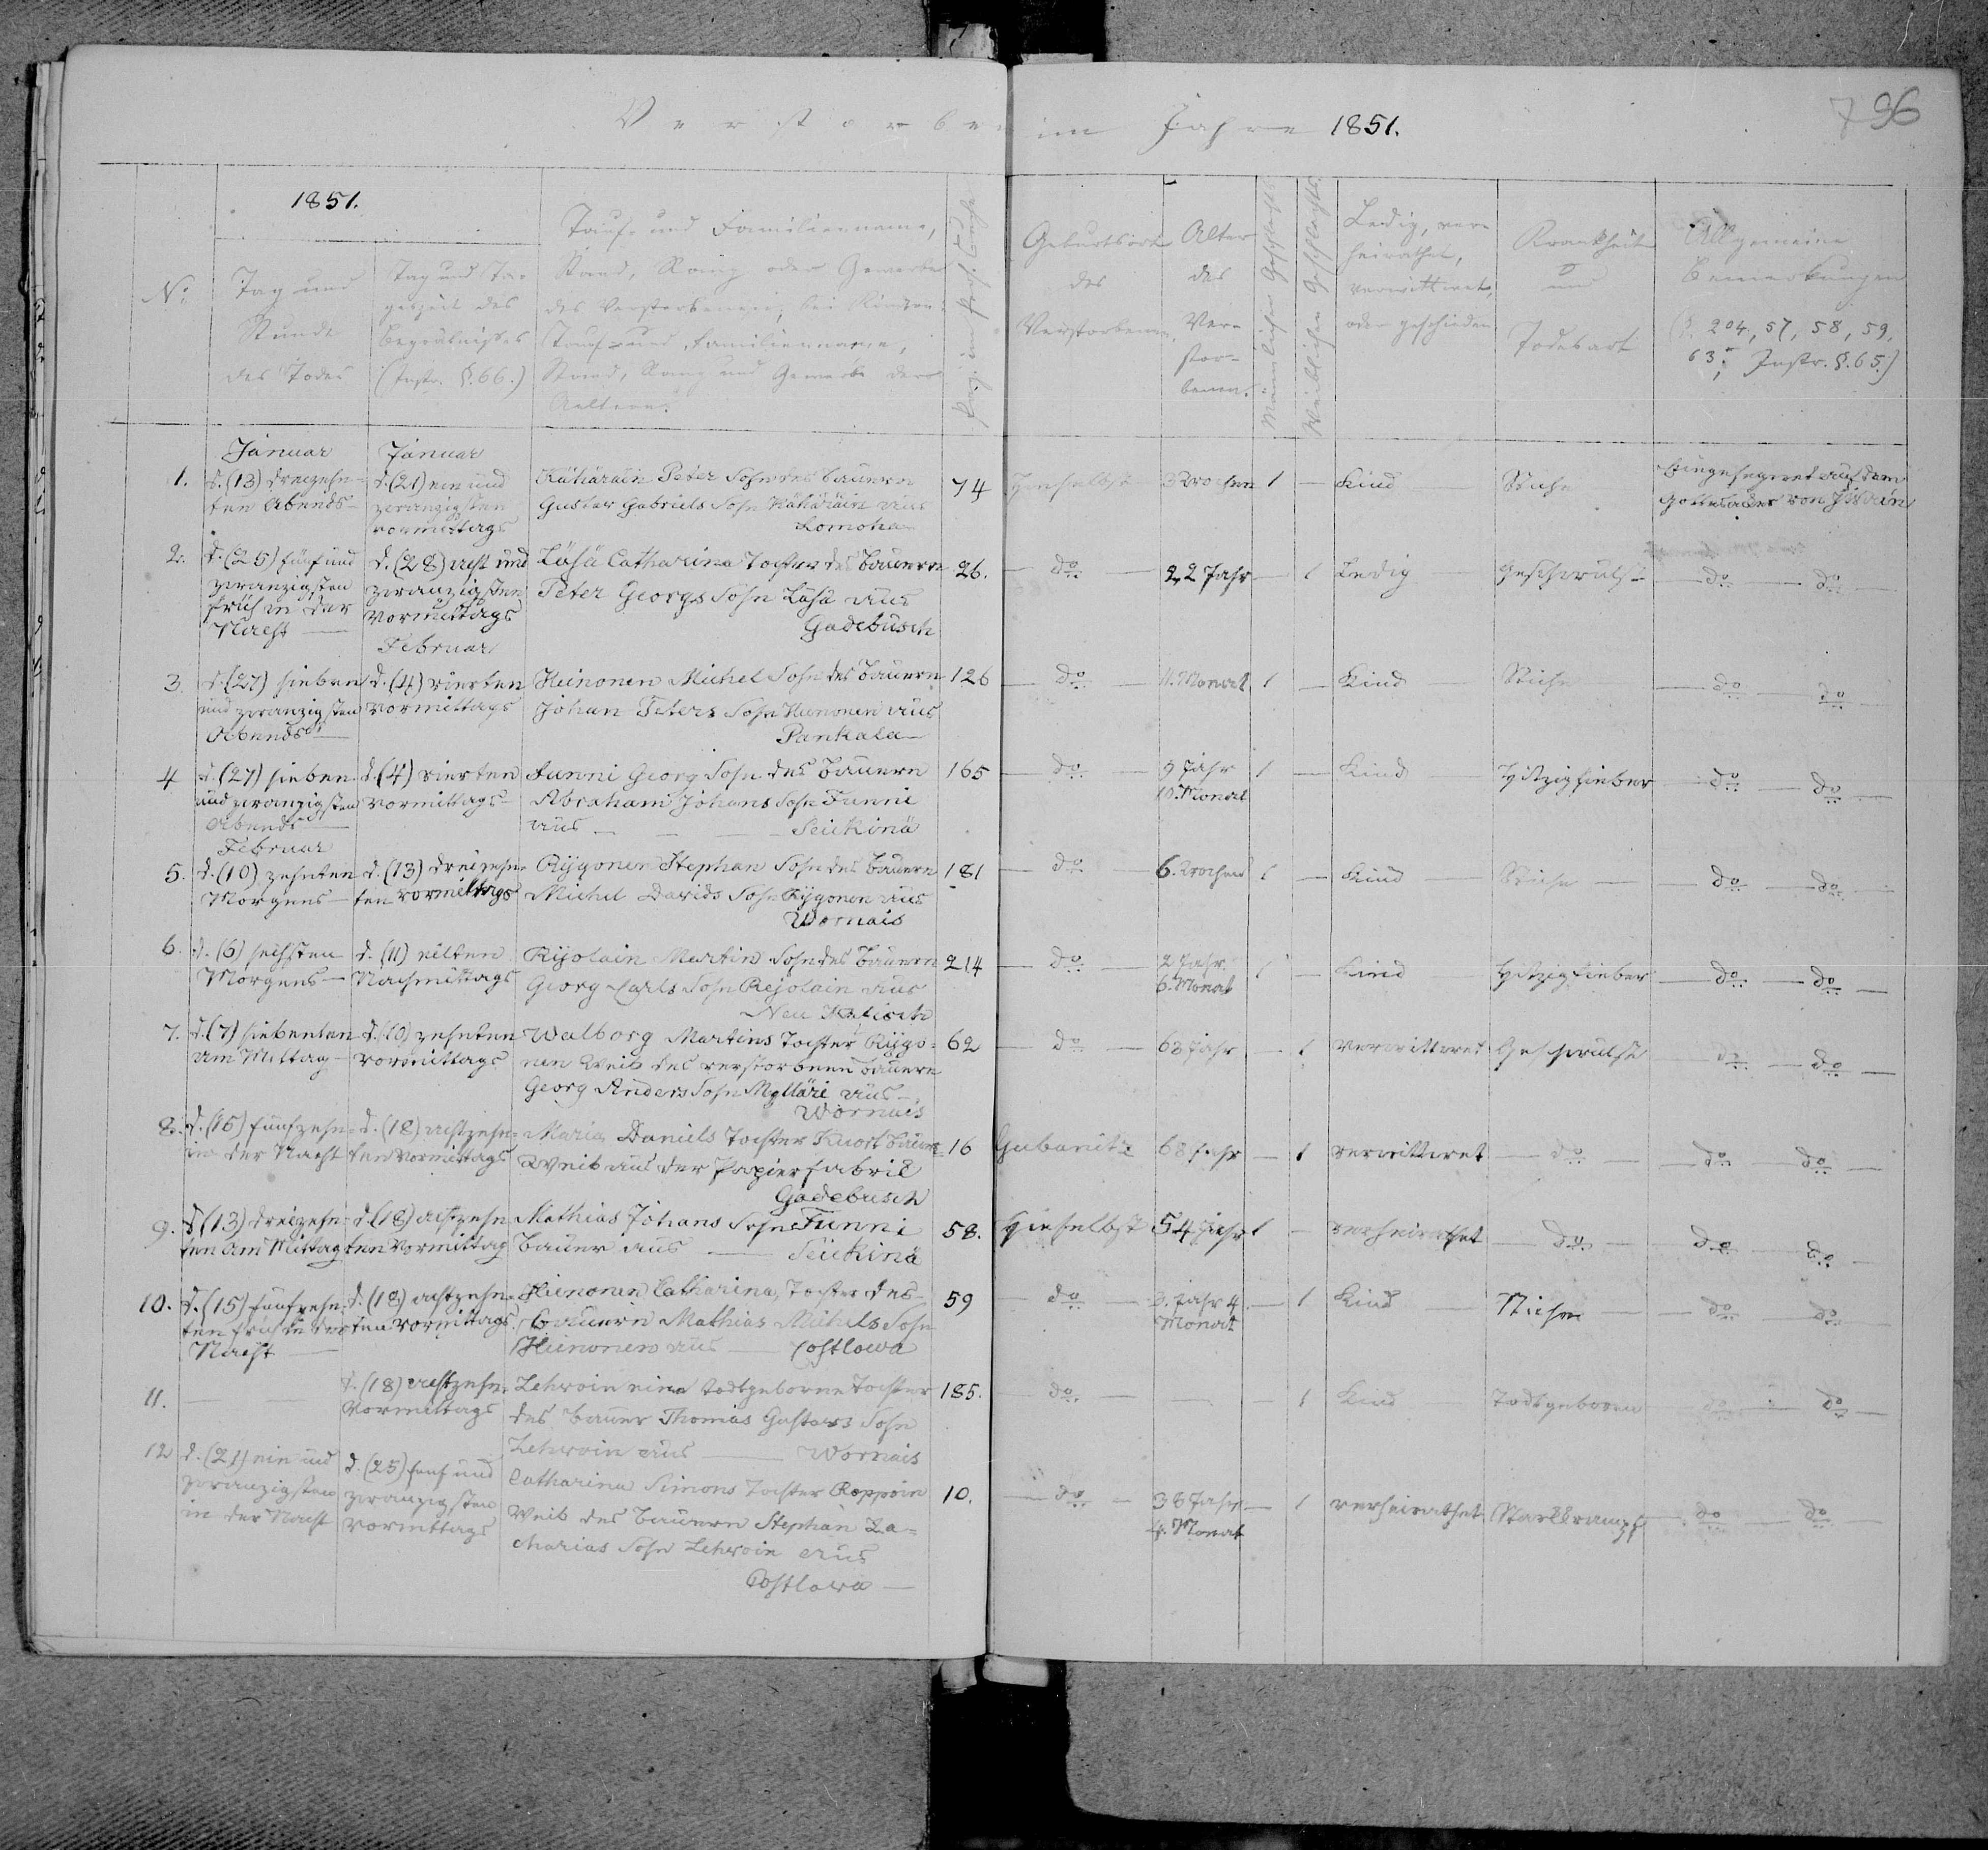 Verstorben im Jahre 1851.
796
1851.
No.
Tag und
Stunde
des Todes
Tag und Ta-
geszeit des
Begräbnisses
(Instr. §. 66.)
Tauf- und Familienname,
Stand, Rang oder Gewerbe
des Verstorbenen; bei Kindern:
Tauf- und Familienname,
Stand, Rang und Gewerbe der
Aeltern.
Geburtsort
des
Verstorbenen.
Alter
des
Ver-
stor-
benen.
Männlichen Geschlechts.
Weiblichen Geschlechts.
Ledig, ver-
heirathet,
verwittwet,
oder geschieden
Krankheit
und
Todesart
Allgemeine
Bemerkungen
(§. 204, 57, 58, 59,
63; Instr. §. 65.)
Januar
Januar
1. d. (13) dreizehn-
ten Abends
d. (21) ein und
zwanzigsten
vormittags
Kähäräin Peter Sohn des Bauern
Gustav Gabriels Sohn Kähäräin aus
Lomoha
74
Hieselbst 3 Wochen 1 — Kind Stiche
Eingesegnet auf dem
Gottesacker von
2. d. (25) fünf und
zwanzigsten
früh in der
Nacht
d. (28) acht und
zwanzigsten
Vormittags
Februar
Läsä Catharina Tochter des Bauern
Peter Georgs Sohn Läsä aus
Gadebusch
26.
do 22 Jahr — 1 Ledig Geschwulst do do
3. d. (27) sieben
und zwanzigsten
Abends
d. (4) vierten
vormittags
Heinonen Michel Sohn des Bauern
Johan Peters Sohn Heinonen aus
Pankala
126
do 11. Monat 1 — Kind Stiche do do
4 d. (27) sieben
und zwanzigsten
Abends
Februar
d. (4) vierten
vormittags
Funni Georg Sohn des Bauern
Abraham Johans Sohn Funni
aus — Seiikinä
165
do 9 Jahr
10. Monat
1 — Kind Hitzigfieber do do
5. d. (10) zehnten
Morgens
d. (13) dreizehn-
ten vormittags
Rÿgonen Stephan Sohn des Bauern
Michel Davids Sohn Rÿgonen aus
Wornais
181
do 6. Wochen 1 — Kind Stiche do do
6. d. (6) sechsten
Morgens
d. (11) eilften
Nachmittags
Rijolain Martin Sohn des Bauern
Georg Carls Sohn Rejolain aus
Neu Kalisch
214
do 2 Jahr
6. Monat
1 — Kind Hitzigfieber do do
7. d. (7) siebenten
am Mittag
d. (10) zehnten
vormittags
Walborg Martins Tochter Rÿgo-
nen Weib des verstorbenen Bauern
Georg Anders Sohn Mylläri aus
Wornais
62
do 63 Jahr — 1 verwittwet Geschwulst do do
8. d. (15) fünfzehn-
in der Nacht
d. (18) achtzehn-
ten vormittags
Maria Daniels Tochter Bauer-
Weib aus der Papierfabrik
Gadebusch
16
Gubanitz 68 Jahr — 1 verwittwet do do do
9. d. (13) dreizehn-
ten am Mittag
d. (18) achtzehn
ten Vormittag
Mathias Johans Sohn Funni
Bauer aus — Seiikinä
58.
Hieselbst 54 Jahr 1 — verheirathet do do do
10. d. (15) fünfzehn-
ten früh in der
Nacht
d. (18) achtzehn-
ten vormittags.
Hienonen Catharina, Tochter des
Bauern Mathias Michels Sohn
Hienonen aus — Costlowa
59
do Jahr 4
Monat
— 1 Kind Stiche do do
11.
d. (18) achtzehn-
Vormittags
Lehwoin eine todtgeborne Tochter
des Bauer Thomas Gustavs Sohn
Lehwoin aus — Wornais
185.
do — 1 Kind Todtgeboren do do
12 d. (21) ein und
zwanzigsten
in der Nacht
d. (25) fünf und
zwanzigsten
vormittags
Catharina Simons Tochter Roppoin
Weib des Bauern Stephan Za-
charias Sohn Lehwoin aus
Costlowa
10.
do 38 Jahr
4. Monat
— 1 verheirathet Starrkrampf do do